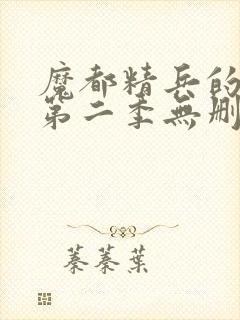 魔都精兵的
第二季無刪
蓁蓁葉